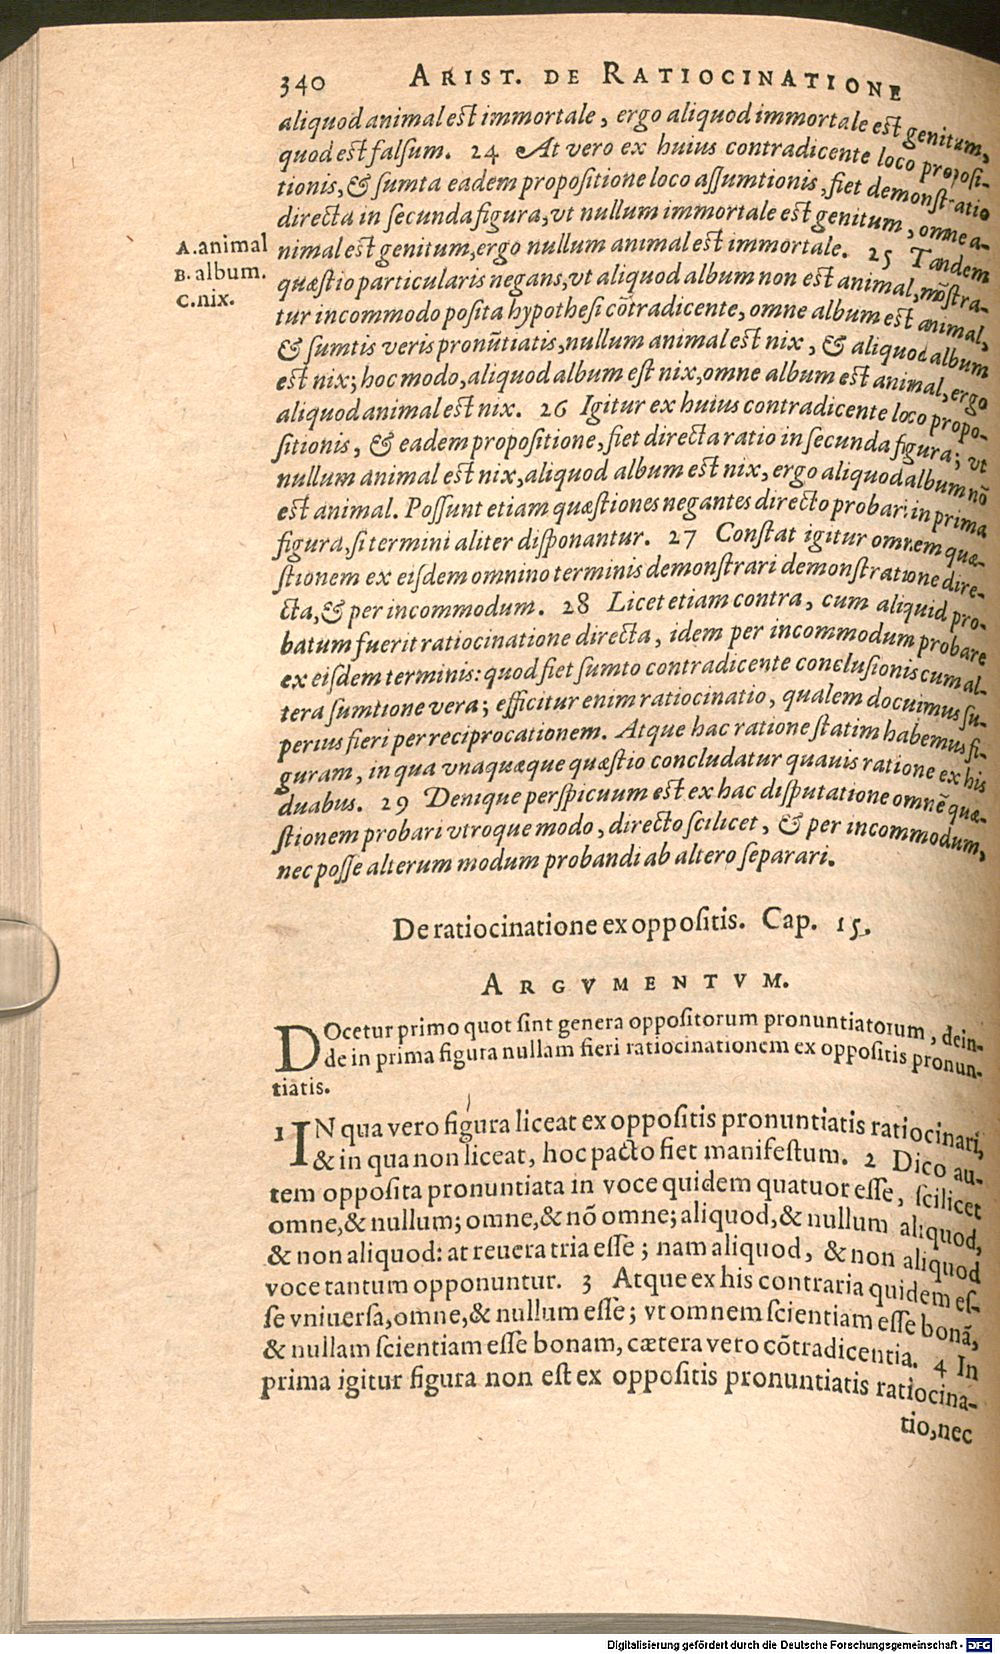 340 ARIST. DE RATIOCINATIONE
aliquod animal est immortale, ergo aliquod immortale est genitum,
quod est falsum. 24 At vero ex huius contradicente loco proposi-
tionis, & sumta eadem propositione loco assumtionis, fiet demonstratio
directa in secunda figura, vt nullum immortale est genitum, omne a-
A. animal
B. album.
C. nix.
nimal est genitum, ergo nullum animal est immortale. 25 Tandem
quæstio particularis negans, vt aliquod album non est animal, mõstra-
tur incommodo posita hypothesi cõtradicente, omne album est animal,
& sumtis veris pronũtiatis, nullum animal est nix, & aliquod album
est nix; hoc modo, aliquod album est nix, omne album est animal, ergo
aliquod animal est nix. 26 Igitur ex huius contradicente loco propo-
sitionis, & eadem propositione, fiet directa ratio in secunda figura; vt
nullum animal est nix, aliquod album est nix, ergo aliquod album nõ
est animal. Possunt etiam quæstiones negantes directo probari in prima
figura, si termini aliter disponantur. 27 Constat igitur omnem quæ-
stionem ex eisdem omnino terminis demonstrari demonstratione dire-
cta, & per incommodum. 28 Licet etiam contra, cum aliquid pro-
batum fuerit ratiocinatione directa, idem per incommodum probare
ex eisdem terminis: quod fiet sumto contradicente conclusionis cum al-
tera sumtione vera; efficitur enim ratiocinatio, qualem docuimus su-
perius fieri per reciprocationem. Atque hac ratione statim habemus fi-
guram, in qua vnaquæque quæstio concludatur quauis ratione ex his
duabus. 29 Denique perspicuum est ex hac disputatione omnẽ quæ-
stionem probari vtroque modo, directo scilicet, & per incommodum,
nec posse alterum modum probandi ab altero separari.
De ratiocinatione ex oppositis. Cap. 15.
ARGVMENTVM.
DOcetur primo quot sint genera oppositorum pronuntiatorum, dein-
de in prima figura nullam fieri ratiocinationem ex oppositis pronun-
tiatis.
1 IN qua vero figura liceat ex oppositis pronuntiatis ratiocinari,
& in qua non liceat, hoc pacto fiet manifestum. 2 Dico au-
tem opposita pronuntiata in voce quidem quatuor esse, scilicet
omne, & nullum; omne, & nõ omne; aliquod, & nullum aliquod,
& non aliquod: at reuera tria esse; nam aliquod, & non aliquod
voce tantum opponuntur. 3 Atque ex his contraria quidem es-
se vniuersa, omne, & nullum esse; vt omnem scientiam esse bonã,
& nullam scientiam esse bonam, cætera vero cõtradicentia. 4 In
prima igitur figura non est ex oppositis pronuntiatis ratiocina-
tio, nec
Digitalisierung gefördert durch die Deutsche Forschungsgemeinschaft - DFG